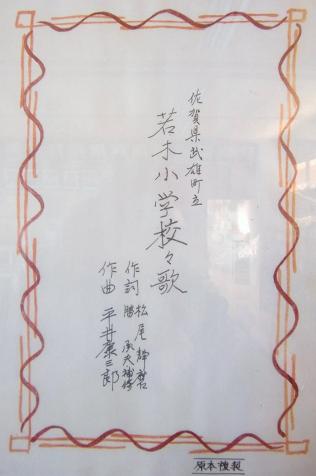 佐賀県武雄町立
若木小学校々歌
作詞 松尾静麿
勝承夫補修
作曲 平井康三郎
原本複製